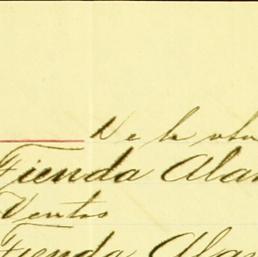 De la vta
Tienda Ala
Ventas
Tienda Ala